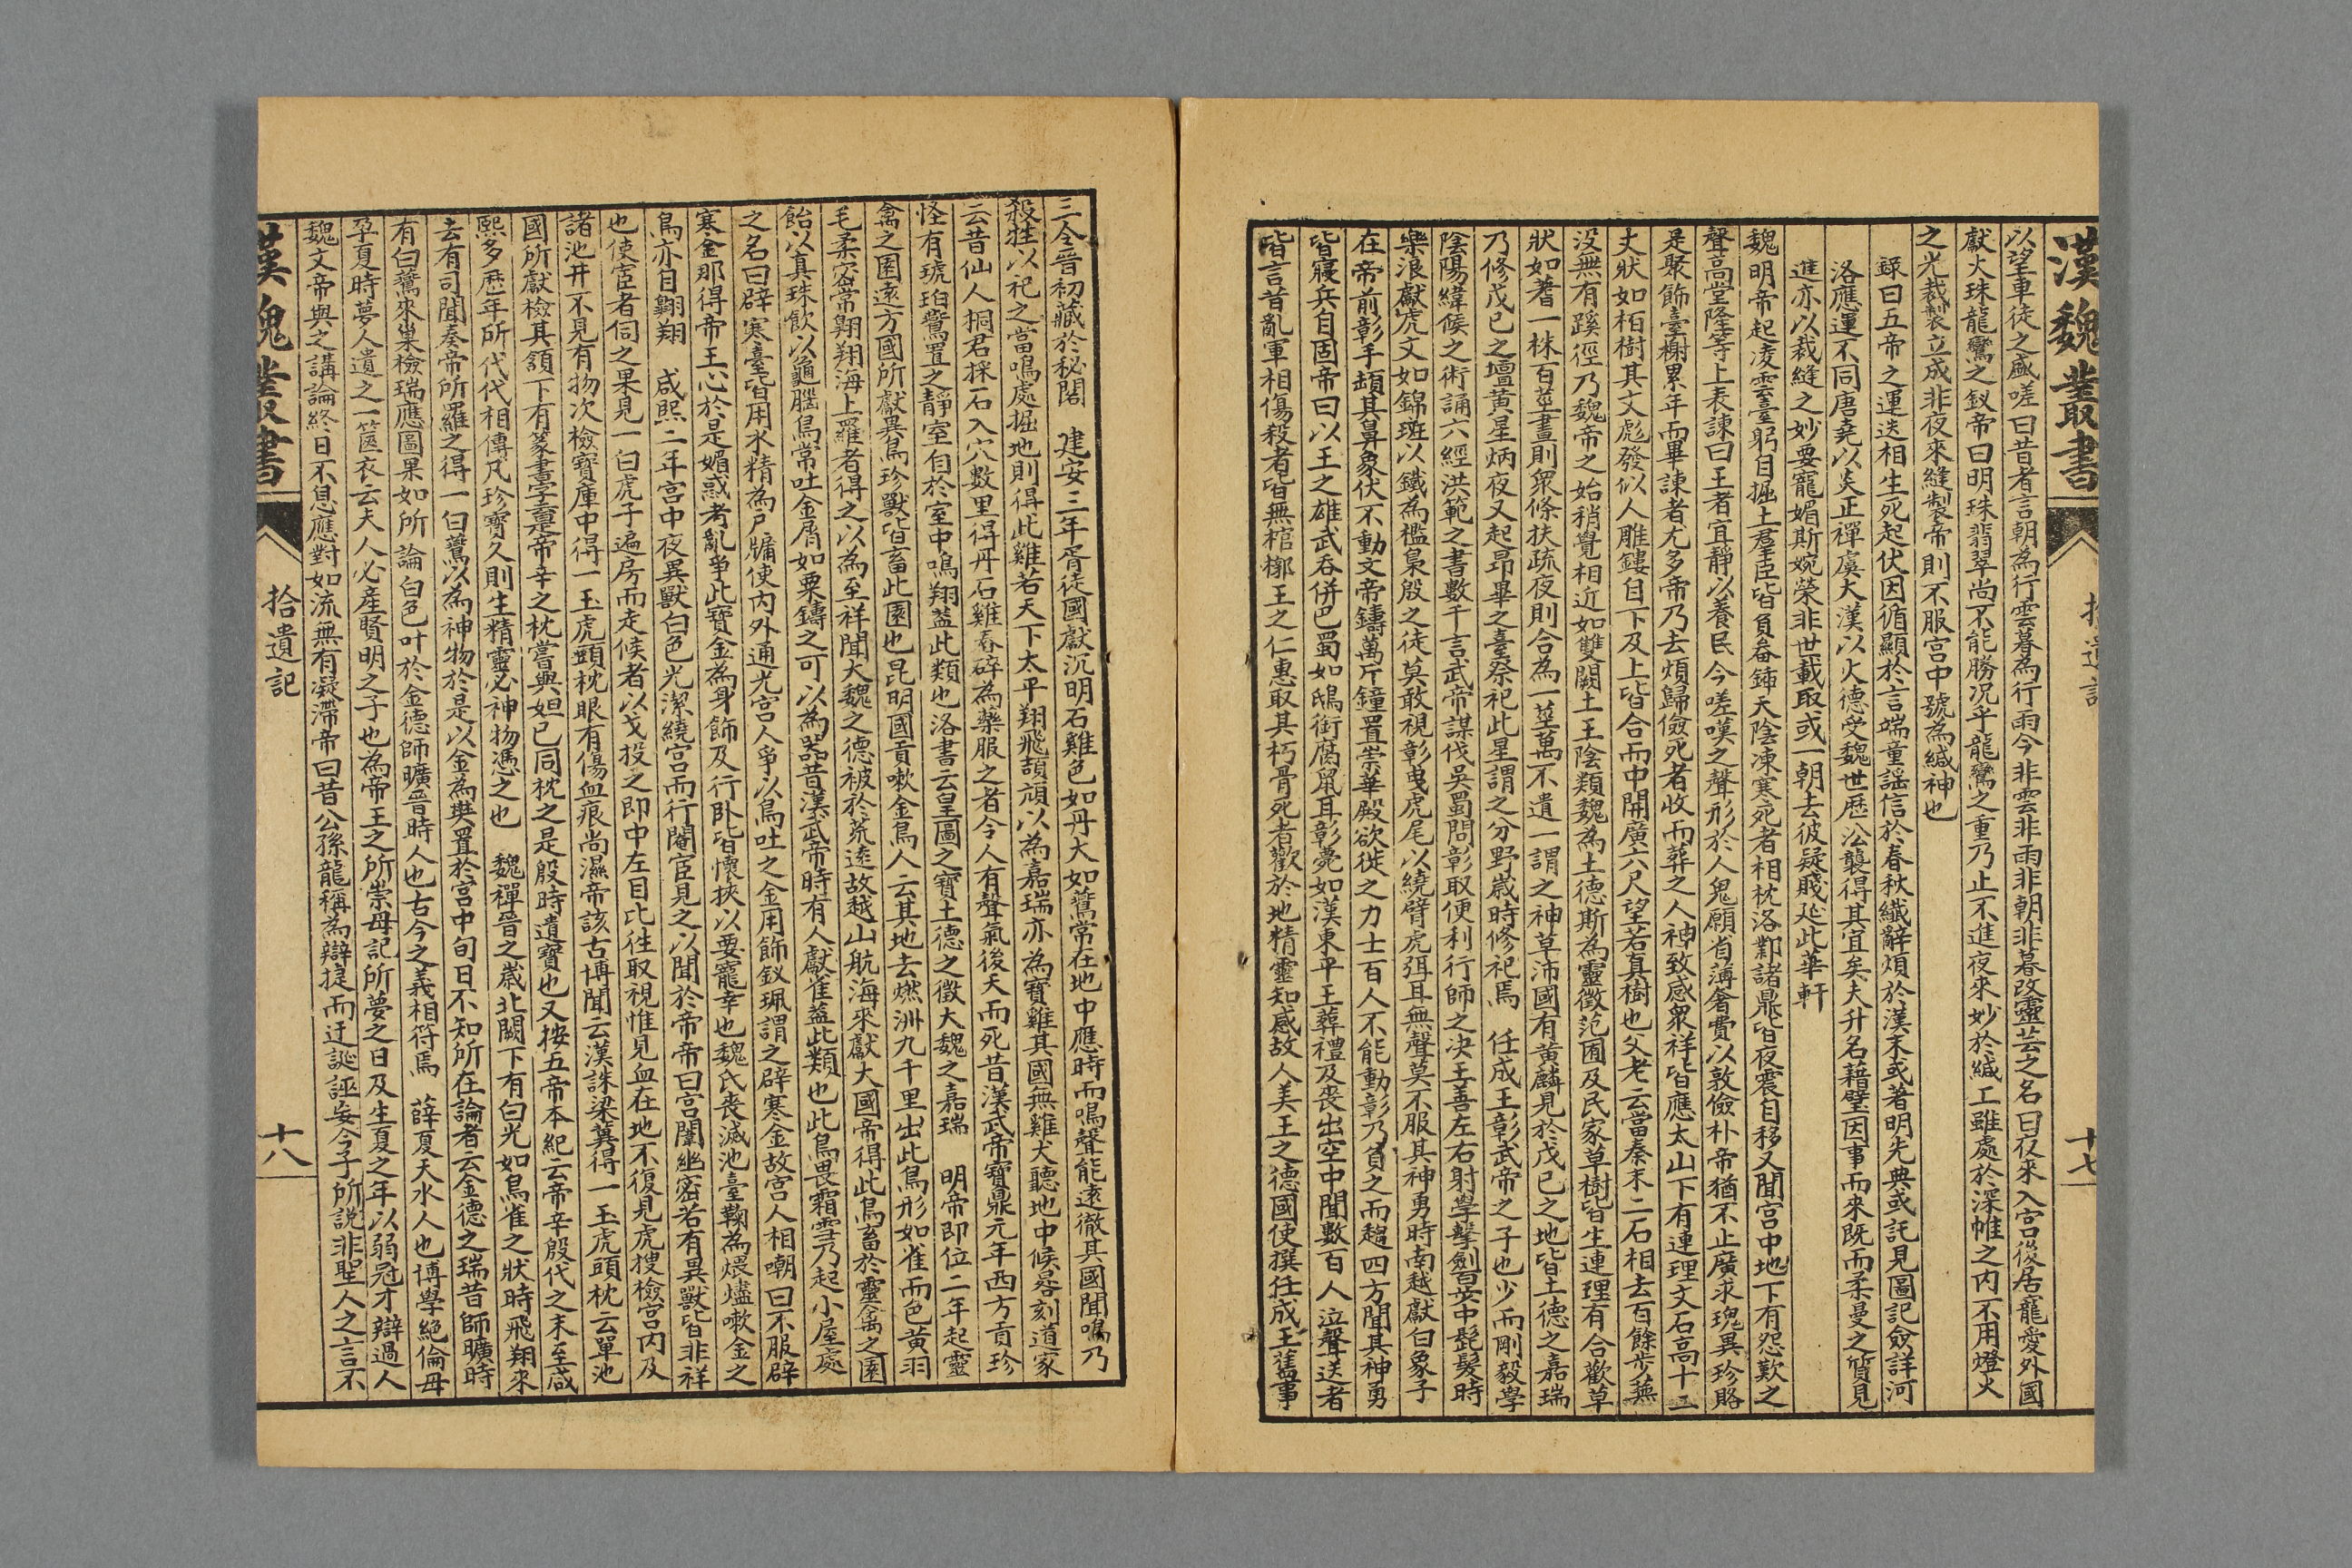 漢魏叢書 拾遺記 十七
以望車徒之盛嗟曰昔者言朝為行雲暮為行雨今非雲非雨非朝非暮改靈芸之名曰夜來入宮後居寵愛外國
獻火珠龍鸞之釵帝曰明珠翡翠尚不能勝况乎龍鸞之重乃止不進夜來妙於緘工雖處於深帷之內不用燈火
之光裁製立成非夜來縫製帝則不服宮中號為緘神也
錄曰五帝之運迭相生死起伏因循顯於言端童謠信於春秋纖辭煩於漢末或著明先典或託見圖記僉詳河
洛應運不同唐堯以炎正禪虞大漢以火德受魏世歷公襲得其宜矣夫升名藉璧因事而來既而柔曼之質見
進亦以裁縫之妙要寵媚斯婉榮非世載取或一朝去彼疑賤延此華軒
魏明帝起凌雲臺躬自掘土羣臣皆負畚鍤天陰凍寒死者相枕洛鄴諸鼎皆夜震自移又聞宮中地下有怨歎之
聲高堂隆等上表諫曰王者宜靜以養民今嗟嘆之聲形於人鬼願省薄奢費以敦儉朴帝猶不止廣求瑰異珍賂
是聚飾臺榭累年而畢諫者尤多帝乃去煩歸儉死者收而葬之人神致感衆祥皆應太山下有連理文石高十二
丈狀如栢樹其文彪發似人雕鏤自下及上皆合而中開廣六尺望若真樹也父老云當秦末二石相去百餘步蕪
沒無有蹊徑乃魏帝之始稍覺相近如雙闕土王陰類魏為土德斯為靈徵苑囿及民家草樹皆生連理有合歡草
狀如蓍一株百莖晝則衆條扶疏夜則合為一莖萬不遺一謂之神草沛國有黃麟見於戊己之地皆土德之嘉瑞
乃修戊己之壇黃星炳夜又起昂畢之臺祭祀此星謂之分野歲時修祀焉　任成王彰武帝之子也少而剛毅學
陰陽緯候之術誦六經洪範之書數千言武帝謀伐吳蜀問彰取便利行師之决王善左右射學擊劍百步中髭髮時
樂浪獻虎文如錦斑以鐵為檻梟殷之徒莫敢視彰曳虎尾以繞臂虎弭耳無聲莫不服其神勇時南越獻白象子
在帝前彰手頓其鼻象伏不動文帝鑄萬斤鐘置崇華殿欲徙之力士百人不能動彰乃負之而趨四方聞其神勇
皆寢兵自固帝曰以王之雄武吞併巴蜀如鴟銜腐鼠耳彰薨如漢東平王葬禮及喪出空中聞數百人泣聲送者
皆言昔亂軍相傷殺者皆無棺槨王之仁惠取其朽骨死者歡於地精靈知感故人美王之德國使撰任成王舊事
三今晉初藏於秘閣　建安三年胥徒國獻沉明石雞色如丹大如鷰常在地中應時而鳴聲能遠徹其國聞鳴乃
殺牲以祀之當鳴處掘地則得此雞若天下太平翔飛頡頏以為嘉瑞亦為寶雞其國無雞犬聽地中候晷刻道家
云昔仙人桐君採石入穴數里得丹石雞舂碎為藥服之者令人有聲氣後天而死昔漢武帝寶鼎元年西方貢珍
怪有琥珀鷰置之靜室自於室中鳴翔蓋此類也洛書云皇圖之寶土德之徵大魏之嘉瑞　明帝即位二年起靈
禽之園遠方國所獻異鳥珍獸皆畜此園也昆明國貢嗽金鳥人云其地去燃洲九千里出此鳥形如雀而色黃羽
毛柔密常翺翔海上羅者得之以為至祥聞大魏之德被於荒遠故越山航海來獻大國帝得此鳥畜於靈禽之園
飴以真珠飲以龜腦鳥常吐金屑如粟鑄之可以為器昔漢武帝時有人獻雀蓋此類也此鳥畏霜雪乃起小屋處
之名曰辟寒臺皆用水精為戶牖使內外通光宮人爭以鳥吐之金用飾釵珮謂之辟寒金故宮人相嘲曰不服辟
寒金那得帝王心於是媚惑者亂爭此寶金為身飾及行卧皆懷挾以要寵幸也魏氏喪滅池臺鞠為煨燼嗽金之
鳥亦自翺翔　咸熙二年宮中夜異獸白色光潔繞宮而行閹宦見之以聞於帝帝曰宮闈幽密若有異獸皆非祥
也使宦者伺之果見一白虎子遍房而走候者以戈投之即中左目比往取視惟見血在地不復見虎搜檢宮內及
諸池井不見有物次檢寶庫中得一玉虎頭枕眼有傷血痕尚濕帝該古博聞云漢誅梁冀得一玉虎頭枕云單池
國所獻檢其頷下有篆書字云是帝辛之枕嘗與妲己同枕之是殷時遺寶也又按五帝本紀云帝辛殷代之末至咸
熙多歷年所代代相傳凡珍寶久則生精靈必神物憑之也　魏禪晉之歲北闕下有白光如鳥雀之狀時飛翔來
去有司聞奏帝所羅之得一白鷰以為神物於是以金為樊置於宮中旬日不知所在論者云金德之瑞昔師曠時
有白鷰來巢檢瑞應圖果如所論白色叶於金德師曠晉時人也古今之義相符焉　薛夏天水人也博學絕倫母
孕夏時夢人遺之一篋衣云夫人必產賢明之子也為帝王之所崇母記所夢之日及生夏之年以弱冠才辯過人
魏文帝與之講論終日不息應對如流無有凝滯帝曰昔公孫龍稱為辯捷而迂誕誣妄今子所說非聖人之言不
漢魏叢書 拾遺記 十八